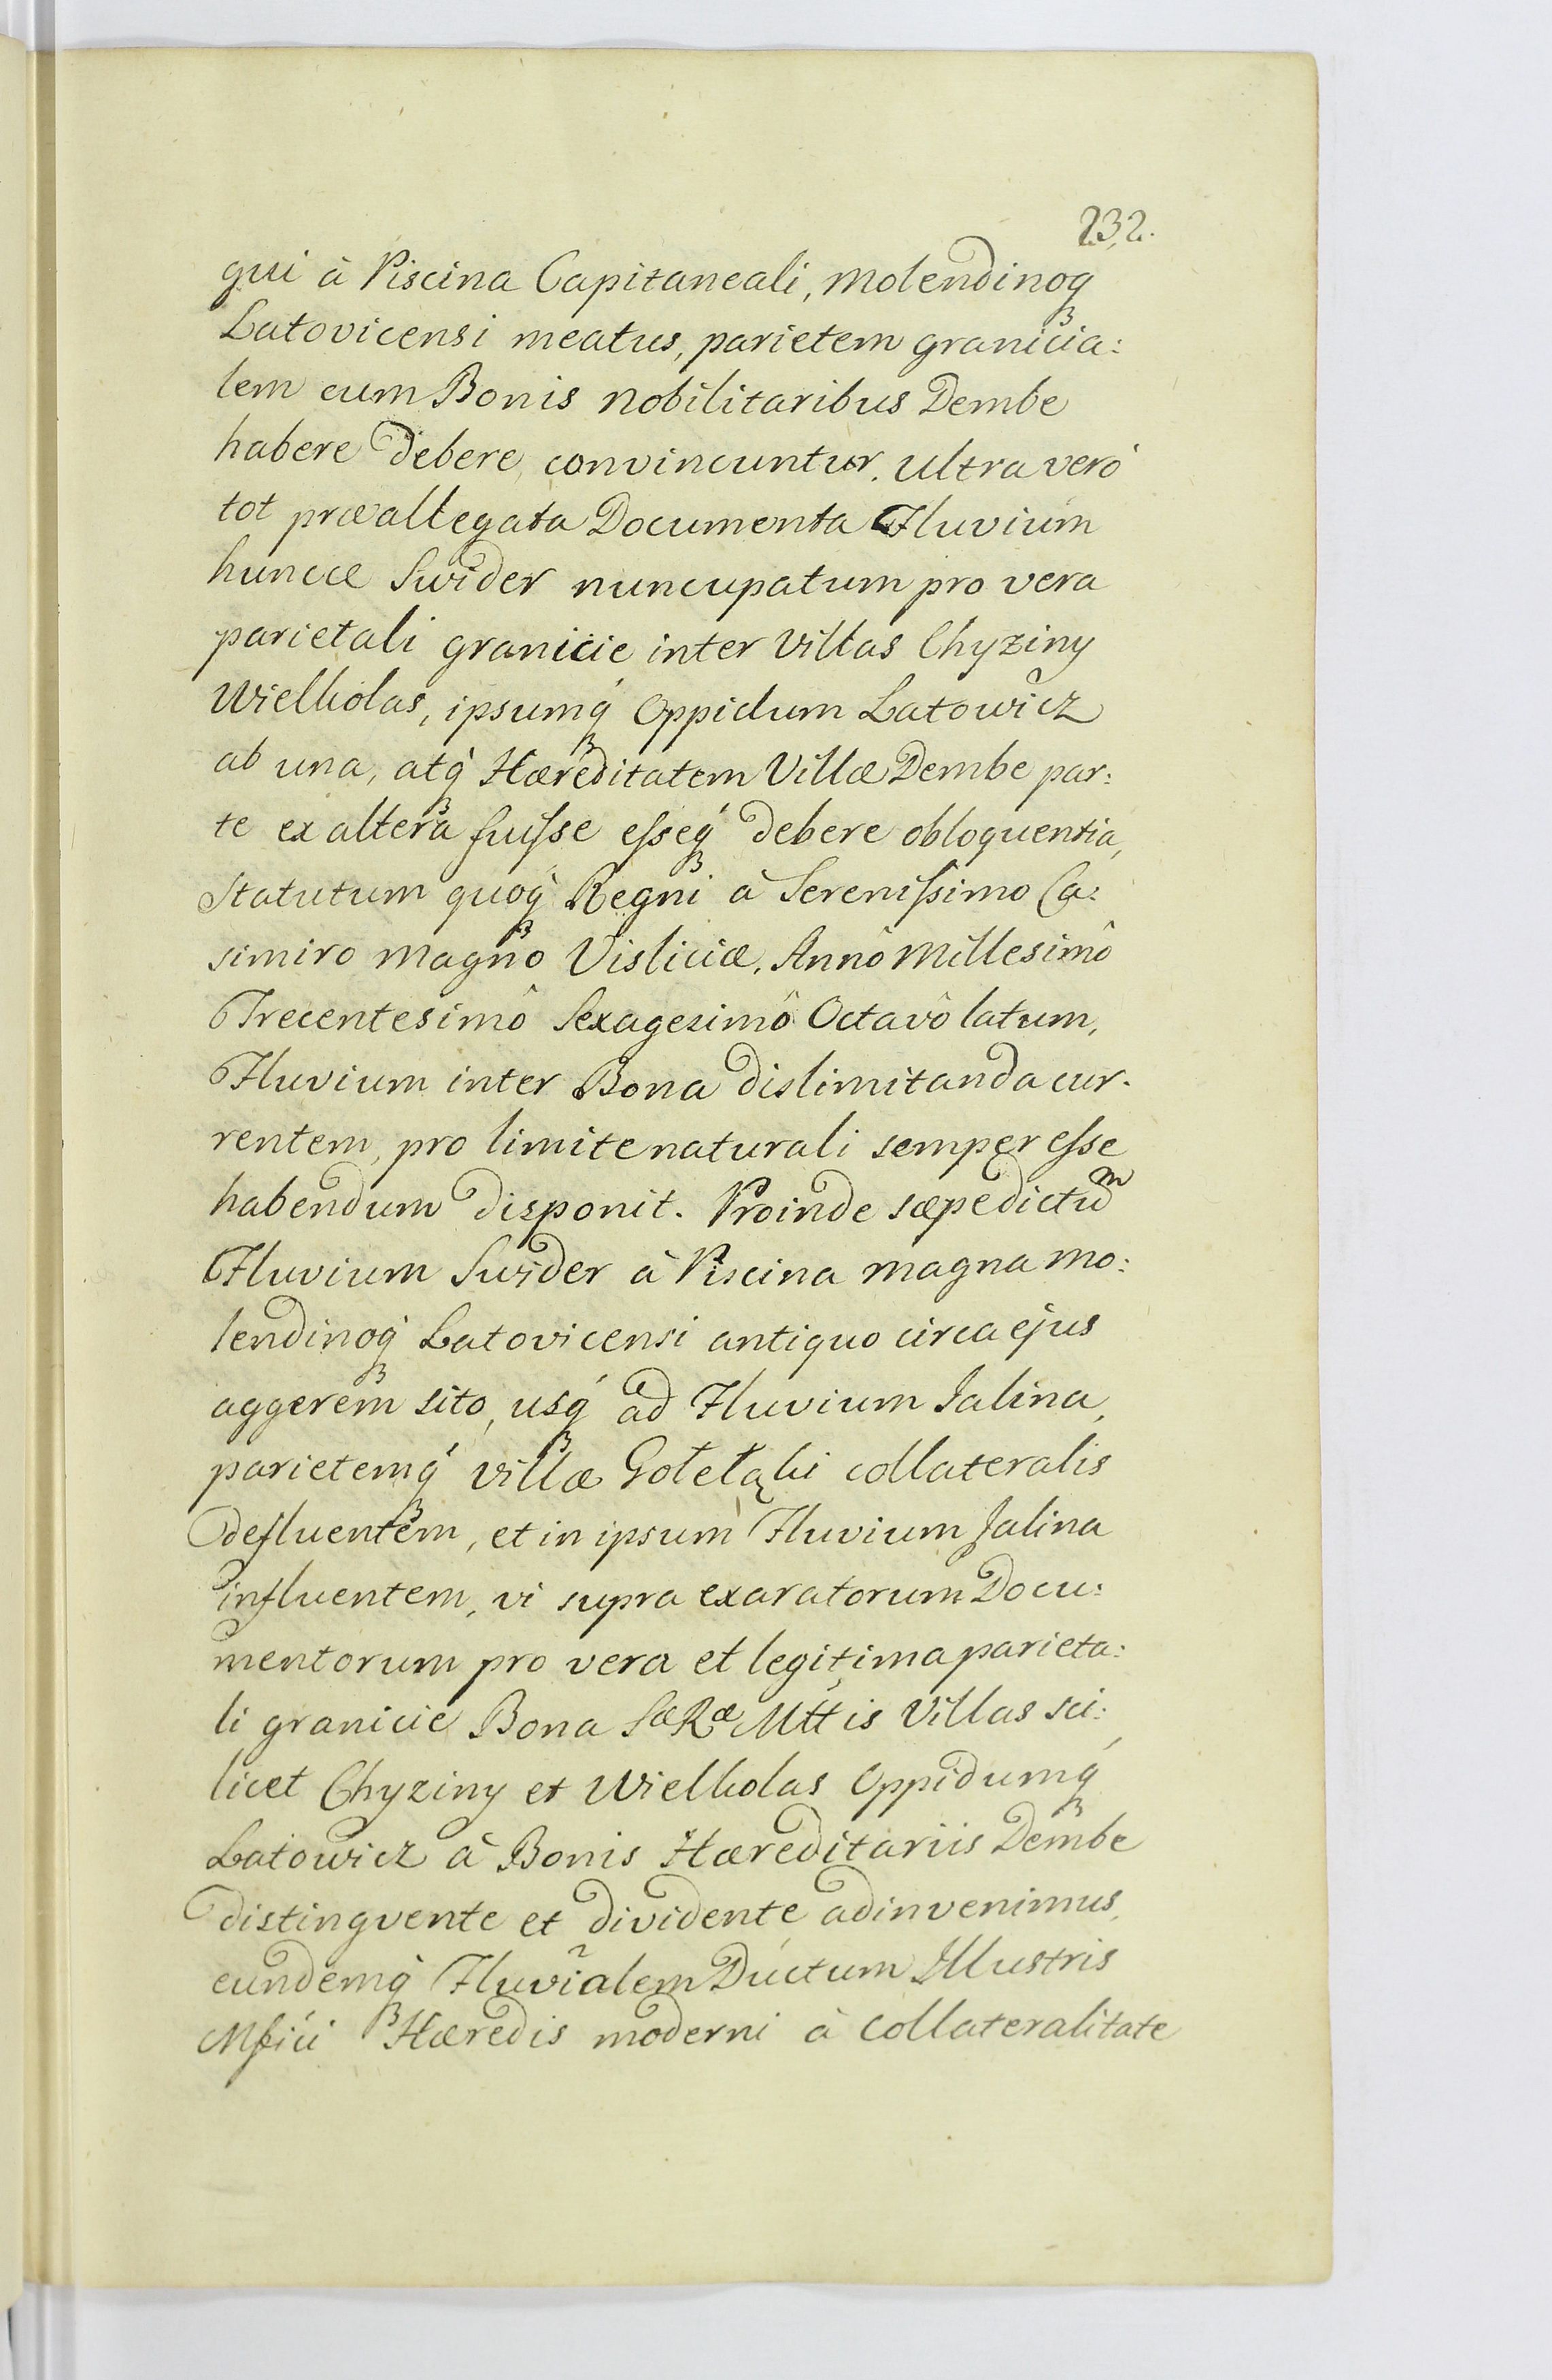 232.
qui à Piscina Capitaneali, Molendinoq́
Latovicensi meatus, parietem granicia:
lem cum Bonis Nobilitaribus Dembe
habere debere convincuntur. Ultra verò
tot præallegata Documenta Fluvium
huncce Swider nuncupatum pro vera
parietali granicie inter Villas Chyziny
Wielholas, ipsumq́ Oppidum Latowicz
ab una, atq́ Hæreditatem Villæ Dembe par:
te ex altera fuisse esseq́ debere obloquentia,
Statutum quoq́ Regni à Serenissimo Ca:
simiro Magno Visliciæ. Annô Millesimô
Trecentesimô Sexagesimô Octavô latum,
Fluvium inter Bona dislimitanda cur.
rentem, pro limite naturali semper esse
habendum disponit. Proinde sæpedictum
Fluvium Swider à Piscina magna Mo:
lendinoq́ Latovicensi antiquo circa ejus
aggerem sito, usq́ ad Fluvium Jalina,
parietemq́ Villæ Gołełąki collateralis
defluentem, et in ipsum Fluvium Jalina
influentem, vi supra exaratorum Docu:
mentorum pro vera et legitima parieta:
li granicie Bona Sæ Ræ Mttis Villas sci:
licet Chyziny et Wielholas Oppidumq́
Latowicz à Bonis Hæreditariis Dembe
distingvente et dividente adinvenimus,
eundemq́ Fluvialem Ductum Illustris
Mfici Hæredis moderni à Collateralitate